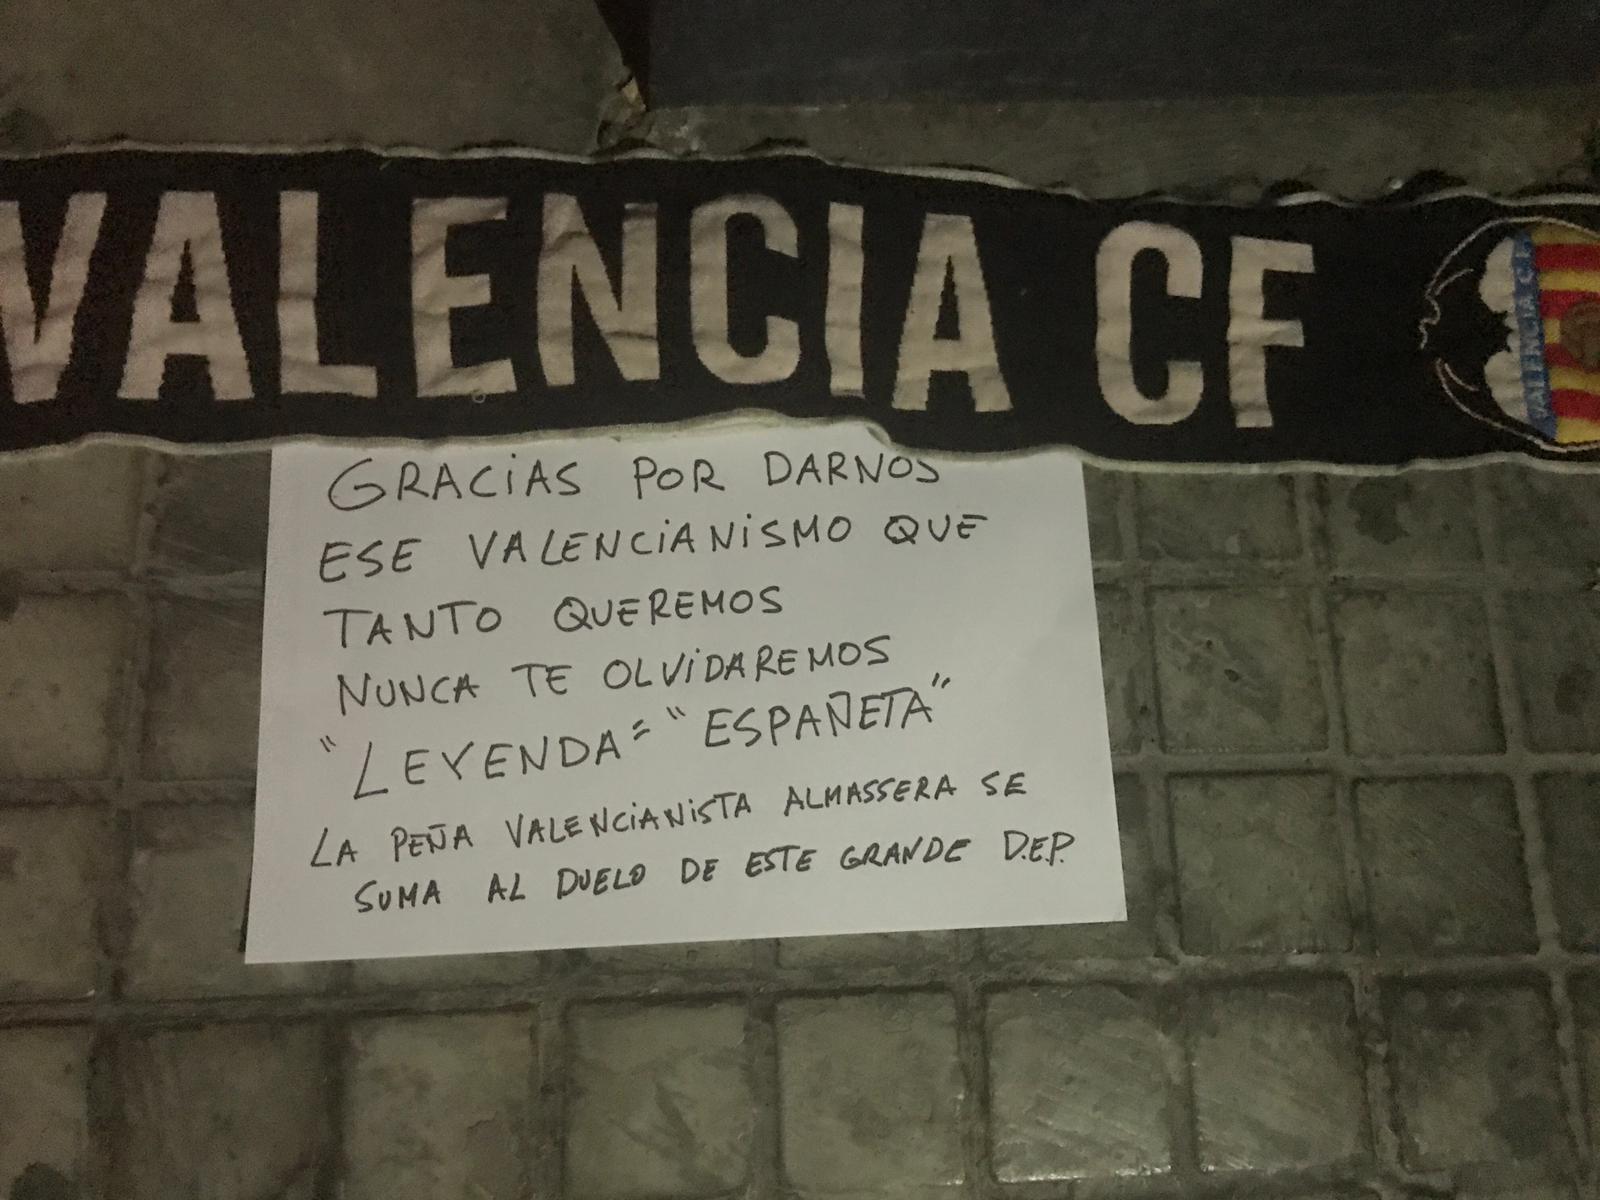 VALENCIA CF
VALENCIA C.F.
GRACIAS POR DARNOS
ESE VALENCIANISMO QUE
TANTO QUEREMOS
NUNCA TE OLVIDAREMOS
"LEYENDA" "ESPAÑETA"
LA PEÑA VALENCIANISTA ALMASSERA SE
SUMA AL DUELO DE ESTE GRANDE D.E.P.